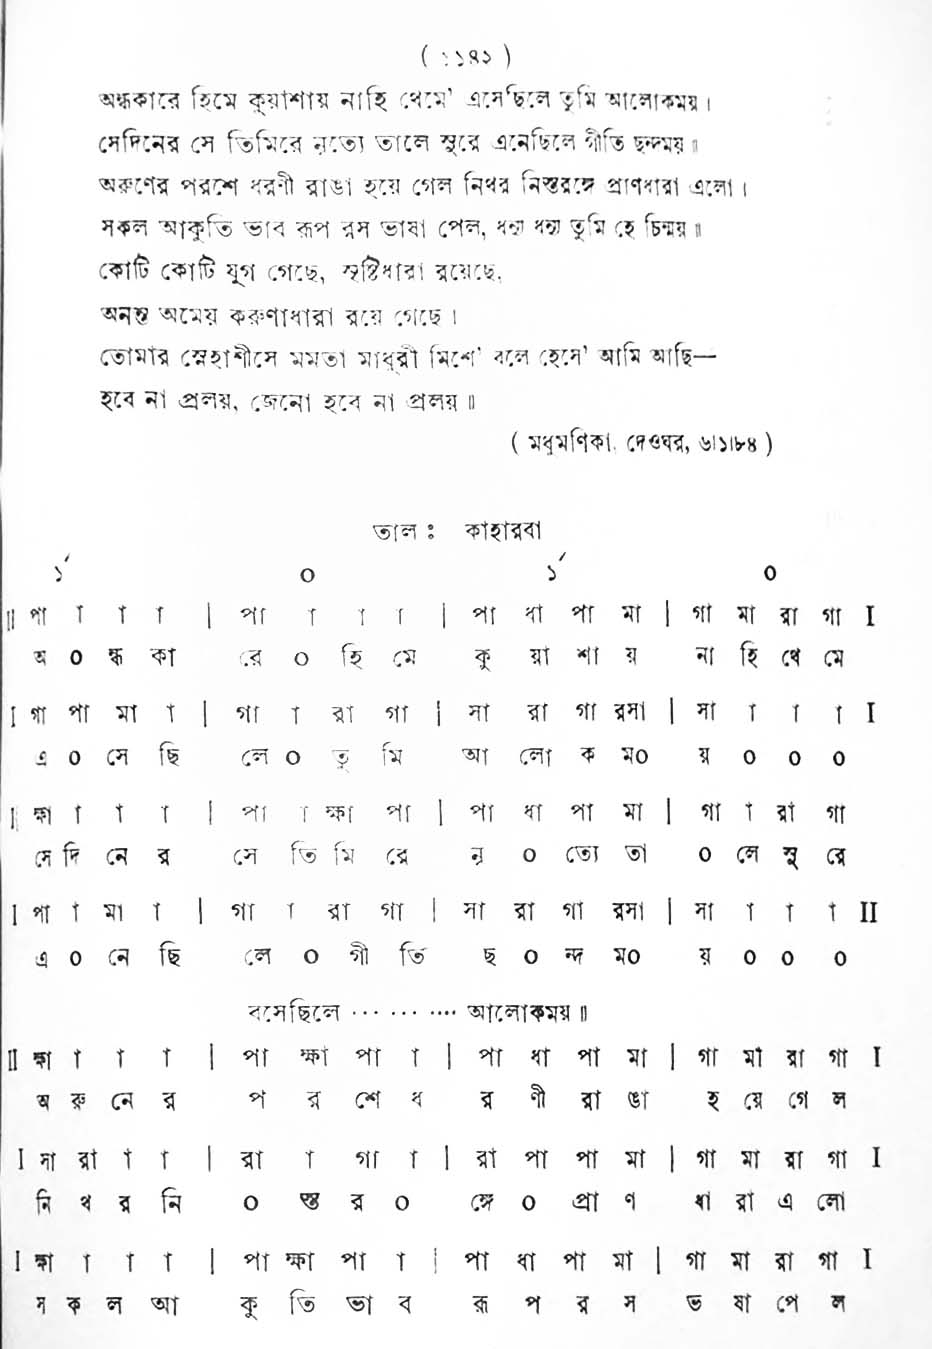 অন্ধকারে হিমে কুয়াশায় নাহি থেমে' এসেছিলে তুমি আলোকময়।
সেদিনের সে তিমিরে নৃত্যে তালে সুরে এনেছিলে গীতি ছন্দময়॥
অরুণের পরশে ধরণী রাঙা হয়ে গেল নিথর নিস্তরঙ্গে প্রাণধারা এলো।
সকল আকুতি ভাব রূপ রস ভাষা পেল, ধন্য ধন্য তুমি হে চিন্ময়॥
কোটি কোটি যুগ গেছে, সৃষ্টিধারা রয়েছে,
অনন্ত অমেয় করুণাধারা বয়ে গেছে।
তোমার স্নেহাশীসে মমতা মাধুরী মিশে' বলে হেসে' আমি আছি—
হবে না প্রলয়, জেনো হবে না প্রলয়॥
( মধুমণিকা, দেওঘর, ৬।১।৮৪ )
তাল : কাহারবা
১´ ০ ১´ ০
II পা া া া | পা া া া | পা ধা পা মা | গা মা রা গা I
অ ০ ন্ধ কা রে ০ হি মে কু য়া শা য় না হি থে মে
I গা পা মা া | গা া রা গা | সা রা গা রসা | সা া া া I
এ ০ সে ছি লে ০ তু মি আ লো ক ম০ য় ০ ০ ০
I ক্ষা া া া | পা া ক্ষা পা | পা ধা পা মা | গা া রা গা
সে দি নে র সে তি মি রে নৃ ০ ত্যে তা ০ লে সু রে
I পা া মা া | গা া রা গা | সা রা গা রসা | সা া া া II
এ ০ নে ছি লে ০ গী তি ছ ০ ন্দ ম০ য় ০ ০ ০
বসেছিলে ... ... .... আলোকময়॥
II ক্ষা া া া | পা ক্ষা পা া | পা ধা পা মা | গা মা রা গা I
অ রু নে র প র শে ধ র ণী রা ঙা হ য়ে গে ল
I সা রা া া | রা া গা া | রা পা পা মা | গা মা রা গা I
নি থ র নি ০ স্ত র ০ ঙ্গে ০ প্রা ণ ধা রা এ লো
I ক্ষা া া া | পা ক্ষা পা া | পা ধা পা মা | গা মা রা গা I
স ক ল আ কু তি ভা ব রূ প র স ভ ষা পে ল